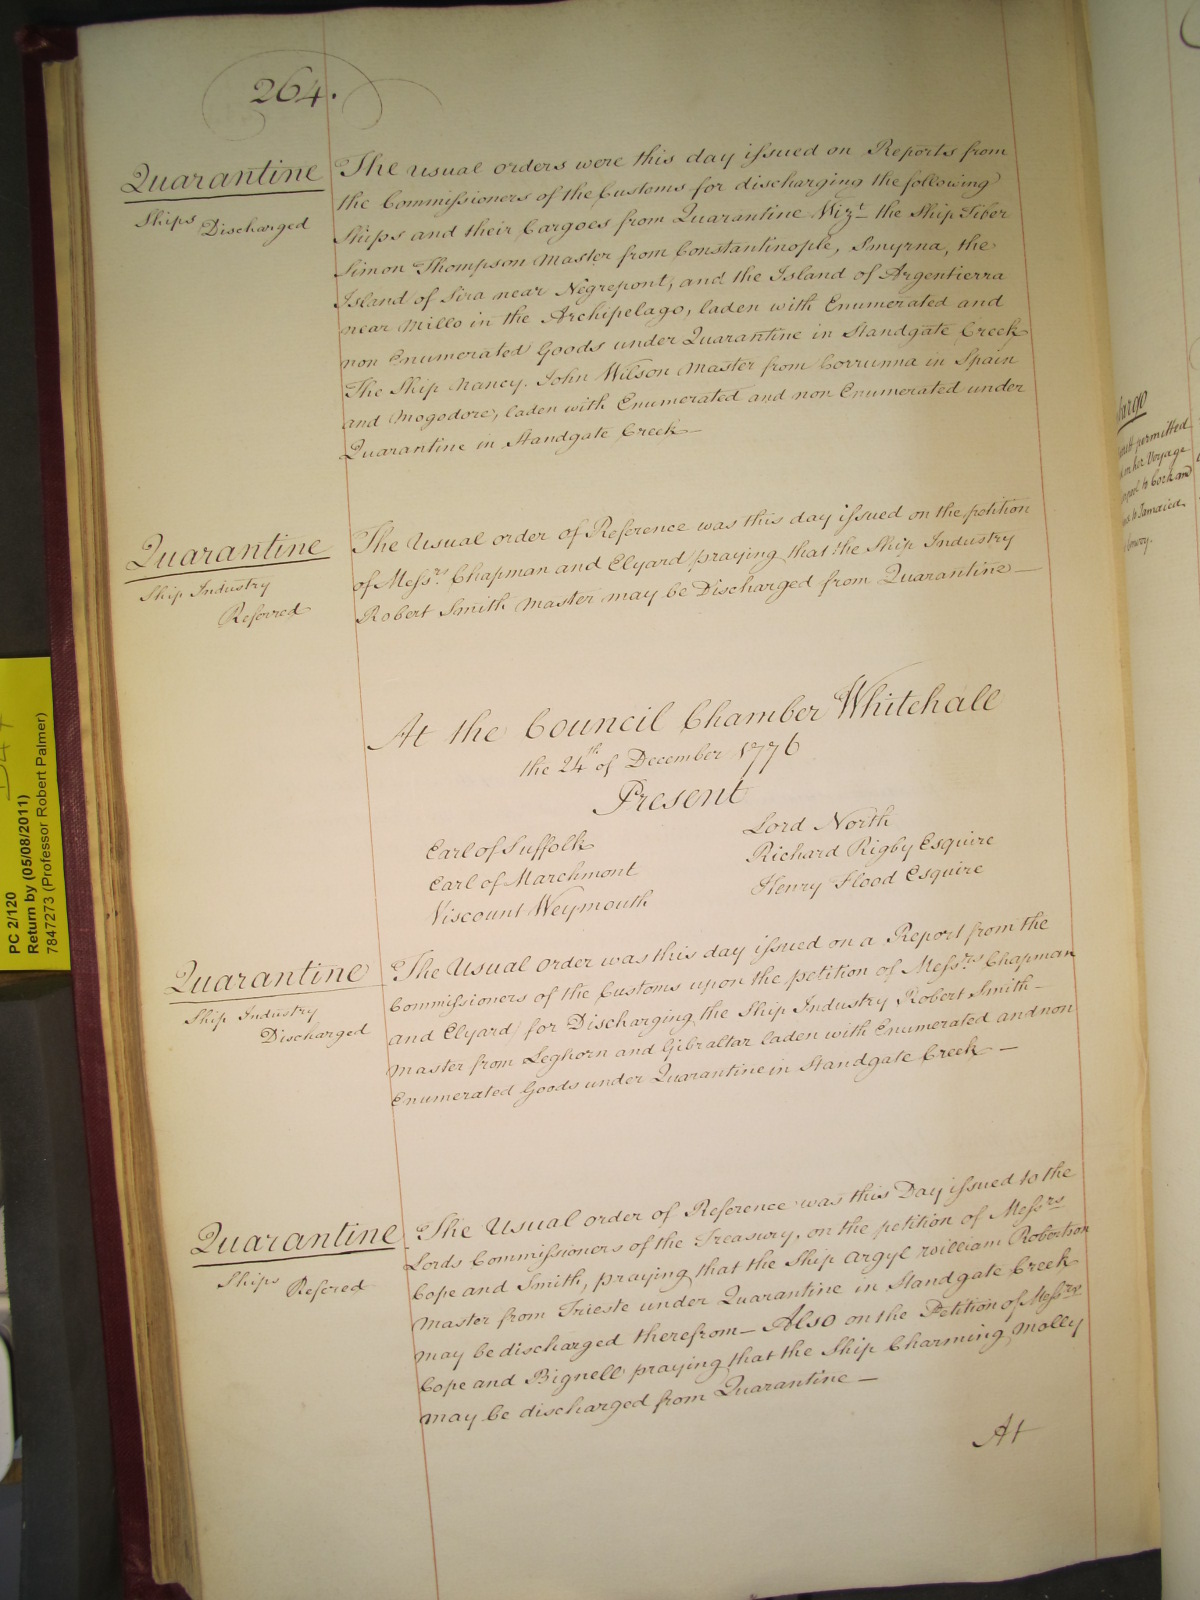 264.
Quarantine
Ships Discharged
The usual orders were this day issued on Reports from
the Commissioners of the Customs for discharging the following
Ships and their Cargoes from Quarantine Vizt. the Ship Tiber
Simon Thompson Master from Constantinople, Smyrna, the
Island of Sira near Negrepont, and the Island of Argentierra
near Millo in the Archipelago, laden with Enumerated and
non Enumerated Goods under Quarantine in Standgate Creek
The Ship Nancy. John Wilson Master from Corrunna in Spain
and Mogodore, laden with Enumerated and non Enumerated under
Quarantine in Standgate Creek—
Quarantine
Ship Industry
Referred
The Usual order of Reference was this day issued on the petition
of Messrs. Chapman and Elyard praying that the Ship Industry
Robert Smith Master may be Discharged from Quarantine—
At the Council Chamber Whitehall
the 24th of December 1776
Present
Earl of Suffolk
Earl of Marchmont
Viscount Weymouth
Lord North
Richard Rigby Esquire
Henry Flood Esquire
Quarantine
Ship Industry
Discharged
The Usual order was this day issued on a Report from the
Commissioners of the Customs upon the petition of Messrs. Chapman
and Elyard for Discharging the Ship Industry Robert Smith—
Master from Leghorn and Gibraltar laden with Enumerated and non
Enumerated Goods under Quarantine in Standgate Creek—
Quarantine
Ships Refered
The Usual order of Reference was this Day issued to the
Lords Commissioners of the Treasury, on the petition of Messrs
Cope and Smith, praying that the Ship Argyl William Robertson
Master from Trieste under Quarantine in Standgate Creek
may be discharged therefrom— Also on the Petition of Messrs
Cope and Bignell praying that the Ship Charming Molly
may be discharged from Quarantine—
At
PC 2/120
Return by (05/08/2011)
7847273 (Professor Robert Palmer)
permitted
on her Voyage
to Cork and
to Jamaica